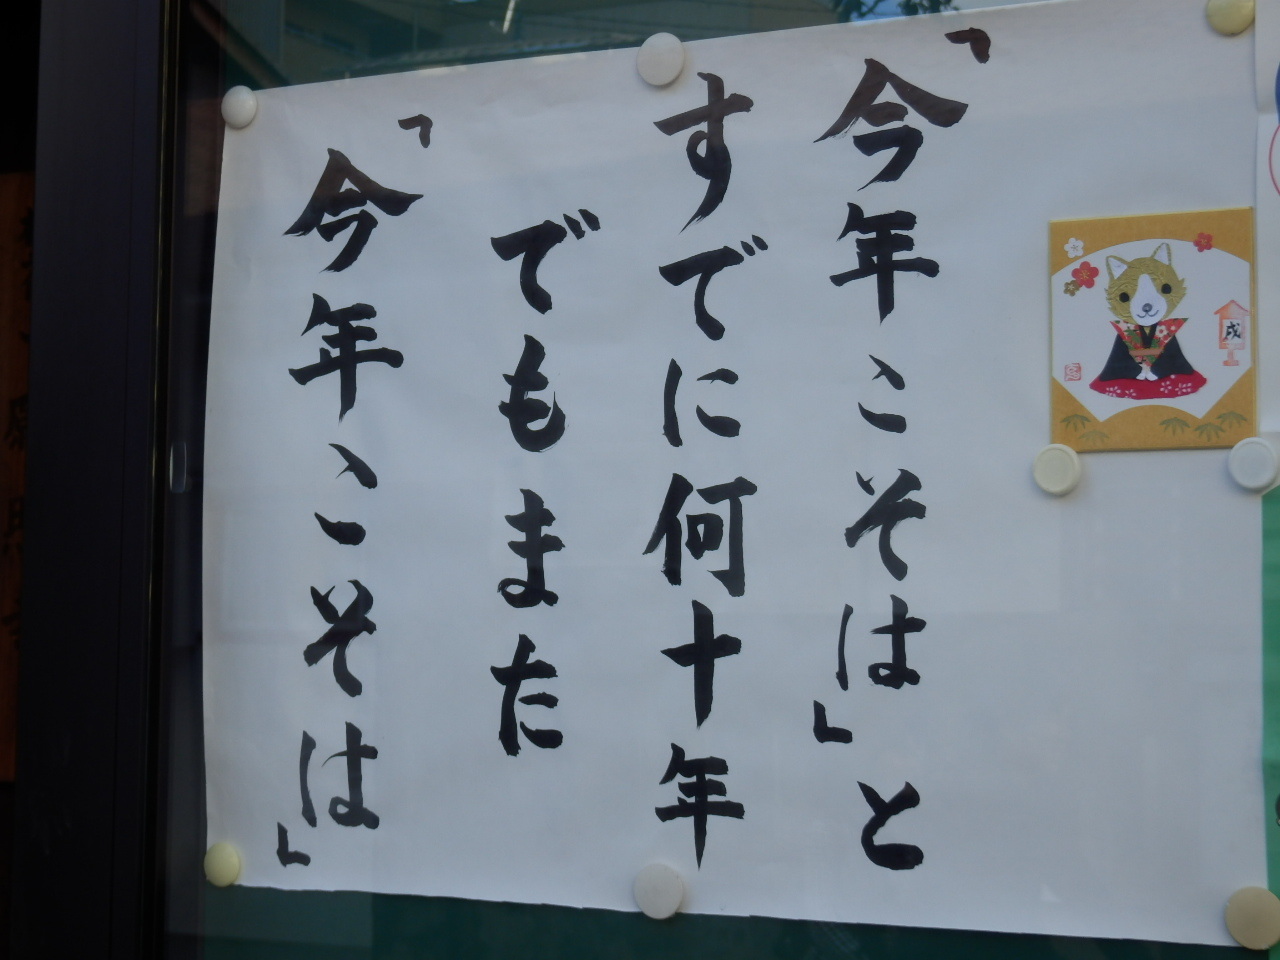 「今年こそは」と
すでに何十年
でもまた
「今年こそは」
戌